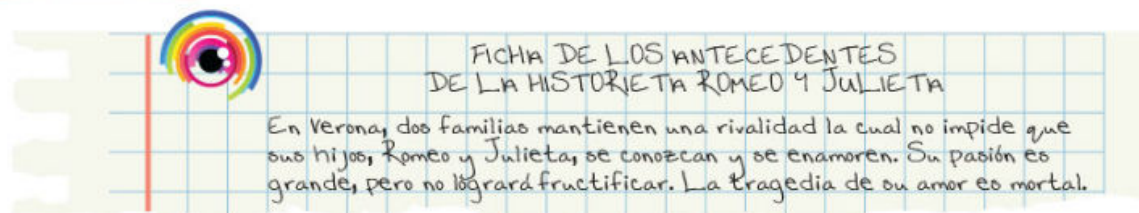 FICHA DE LOS ANTECEDENTES
DE LA HISTORIETA ROMEO Y JULIETA
En Verona, dos familias mantienen una rivalidad la cual no impide que
sus hijos, Romeo y Julieta, se conozcan y se enamoren. Su pasión es
grande, pero no lógrará fructificar. La tragedia de su amor es mortal.